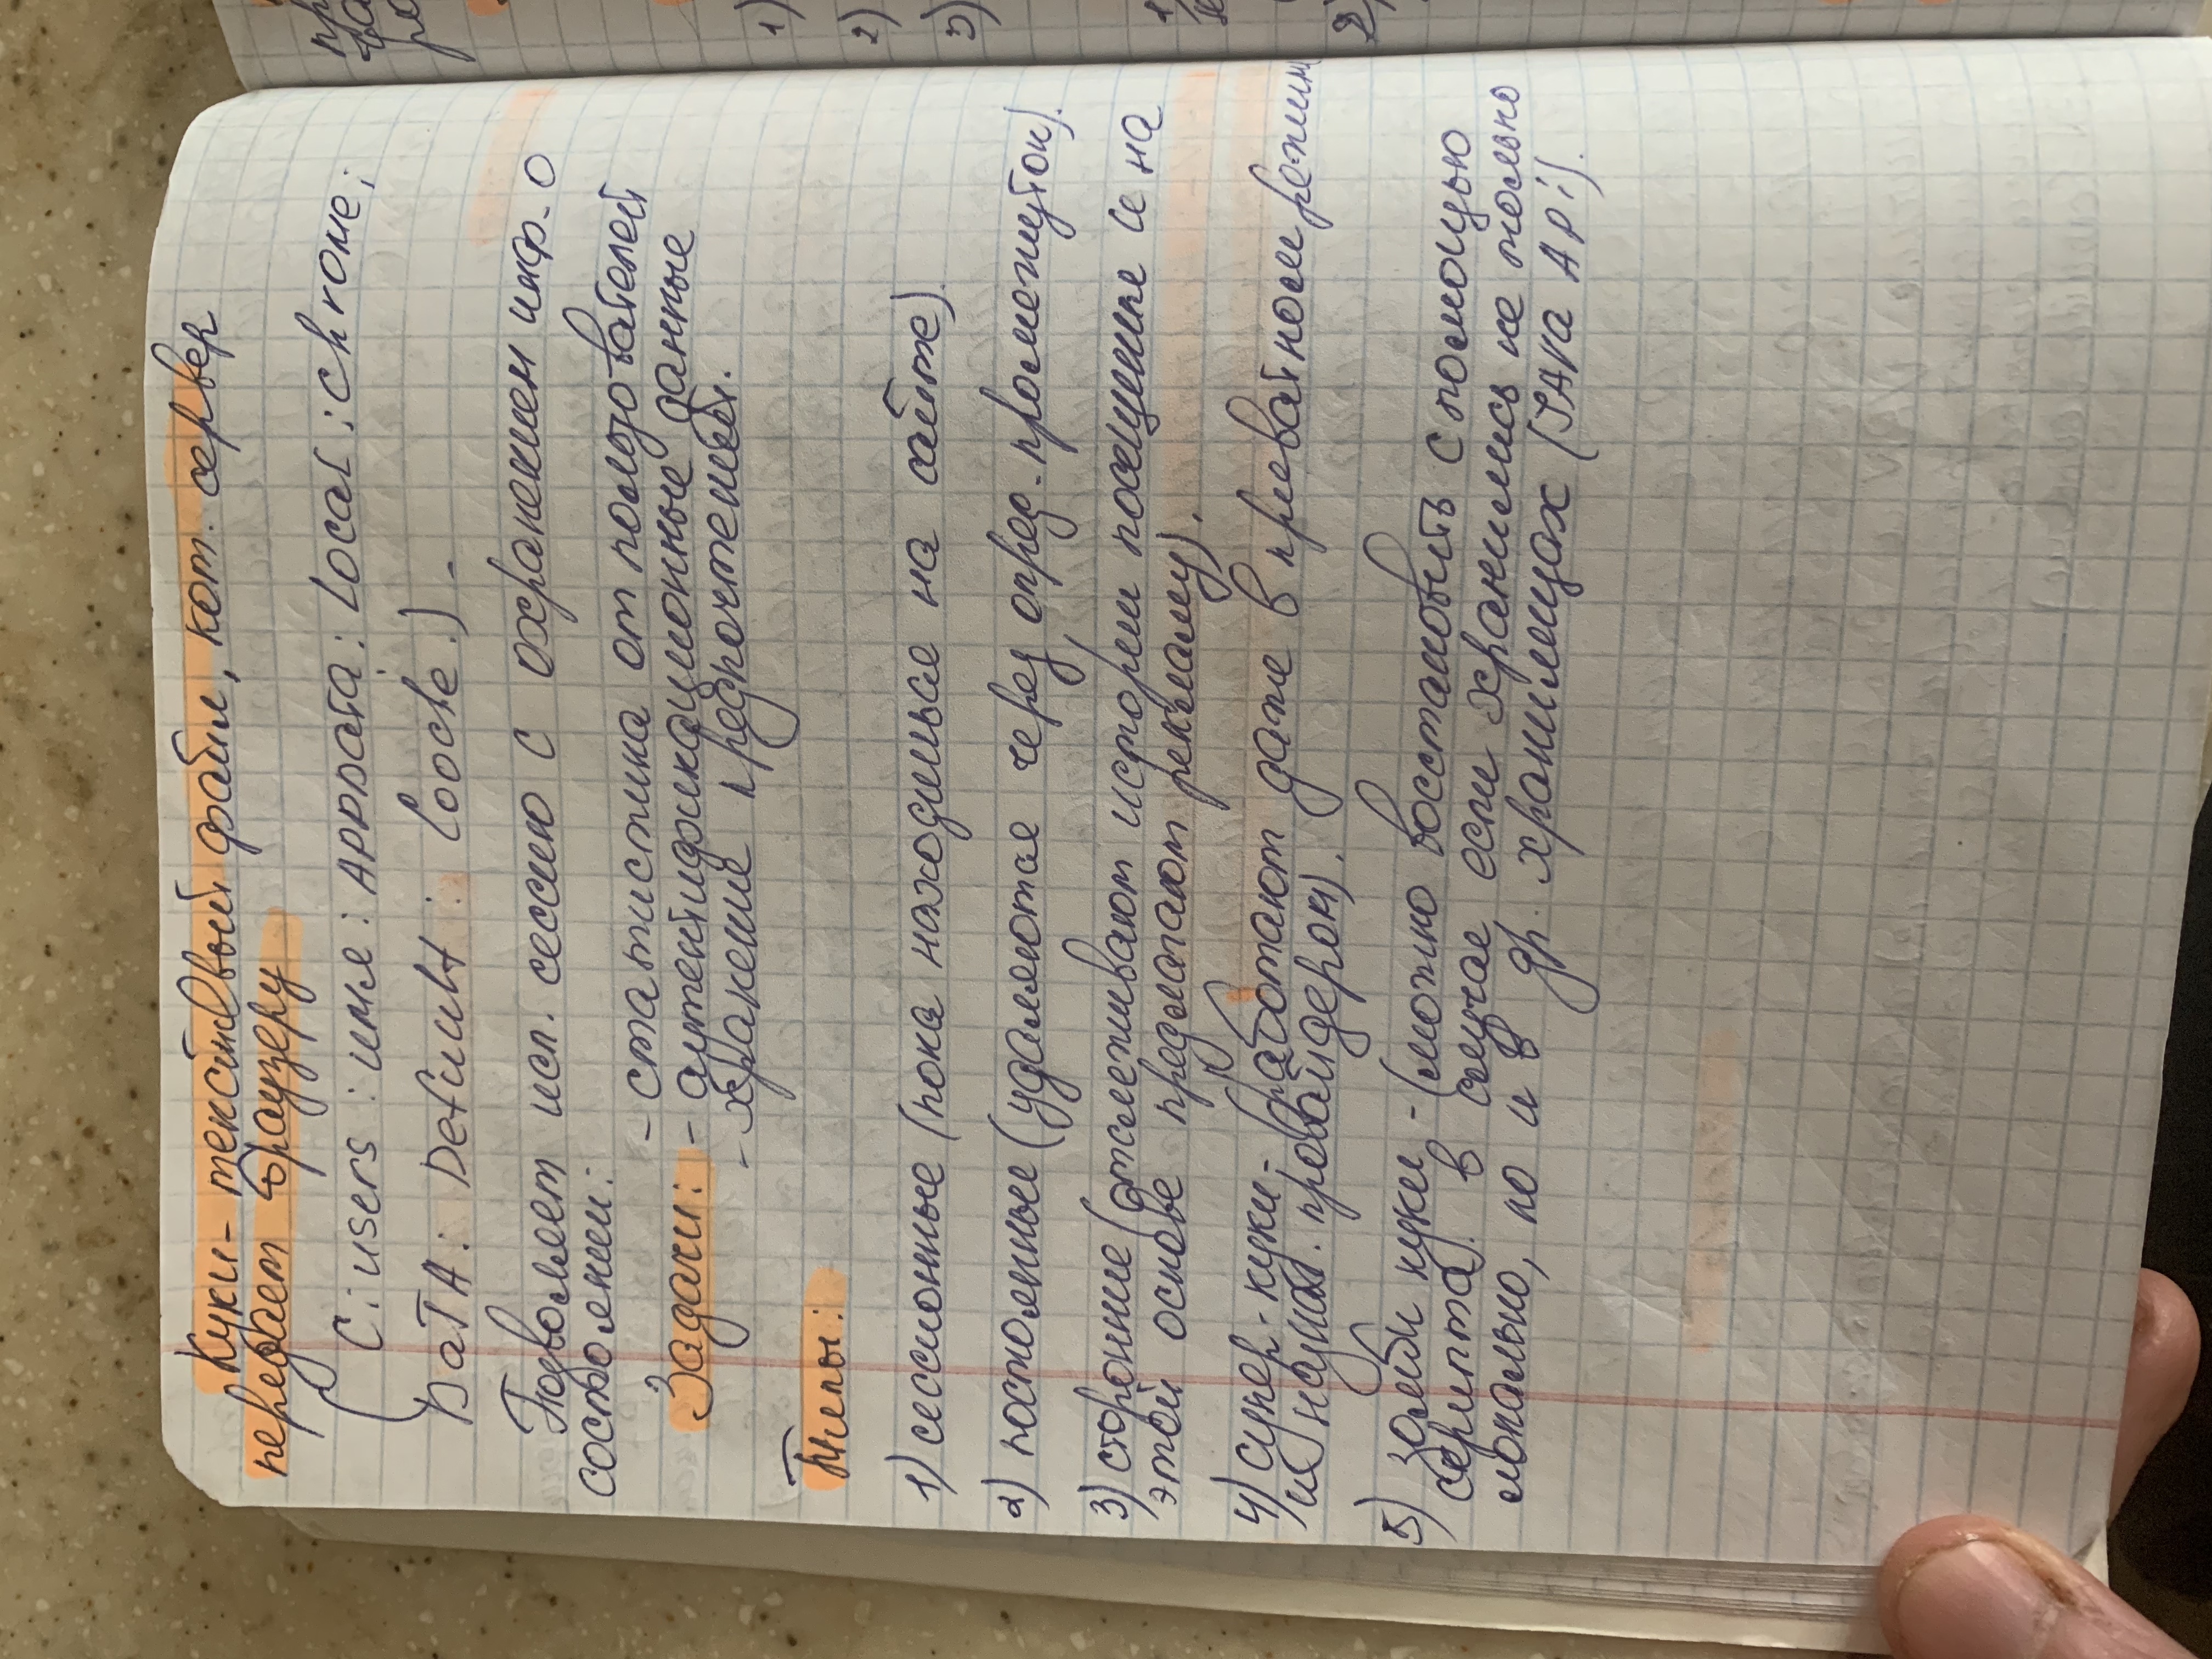 Куки - текстовый файл, кот. сервер
передает браузеру
( C: users : имя : APPDATA : Local ; Chrome ;
DATA : Default : Coocle.) -
Позволяет исп. сессию с охранением инф. о
состоянии:
- статистика от ползователей
Задачи: - аутентификационные данные
- хранение предпочтений.
Типы:
1) сессионные (пока находишься на сайте).
2) постоянные (удаляются через опред. промежуток).
3) сторонние (отслеживают истории посещения и на
этой основе предлагают рекламу).
4) супер-куки - (работают даже в приватном режиме
и провайдером).
5) зомби куки - (можно восстановить с помощью
скрипта. в случае, если хранились не только
локально, но и в др. хранилищах (JAVA APi).
пр
1)
2)
3)
1)
2)